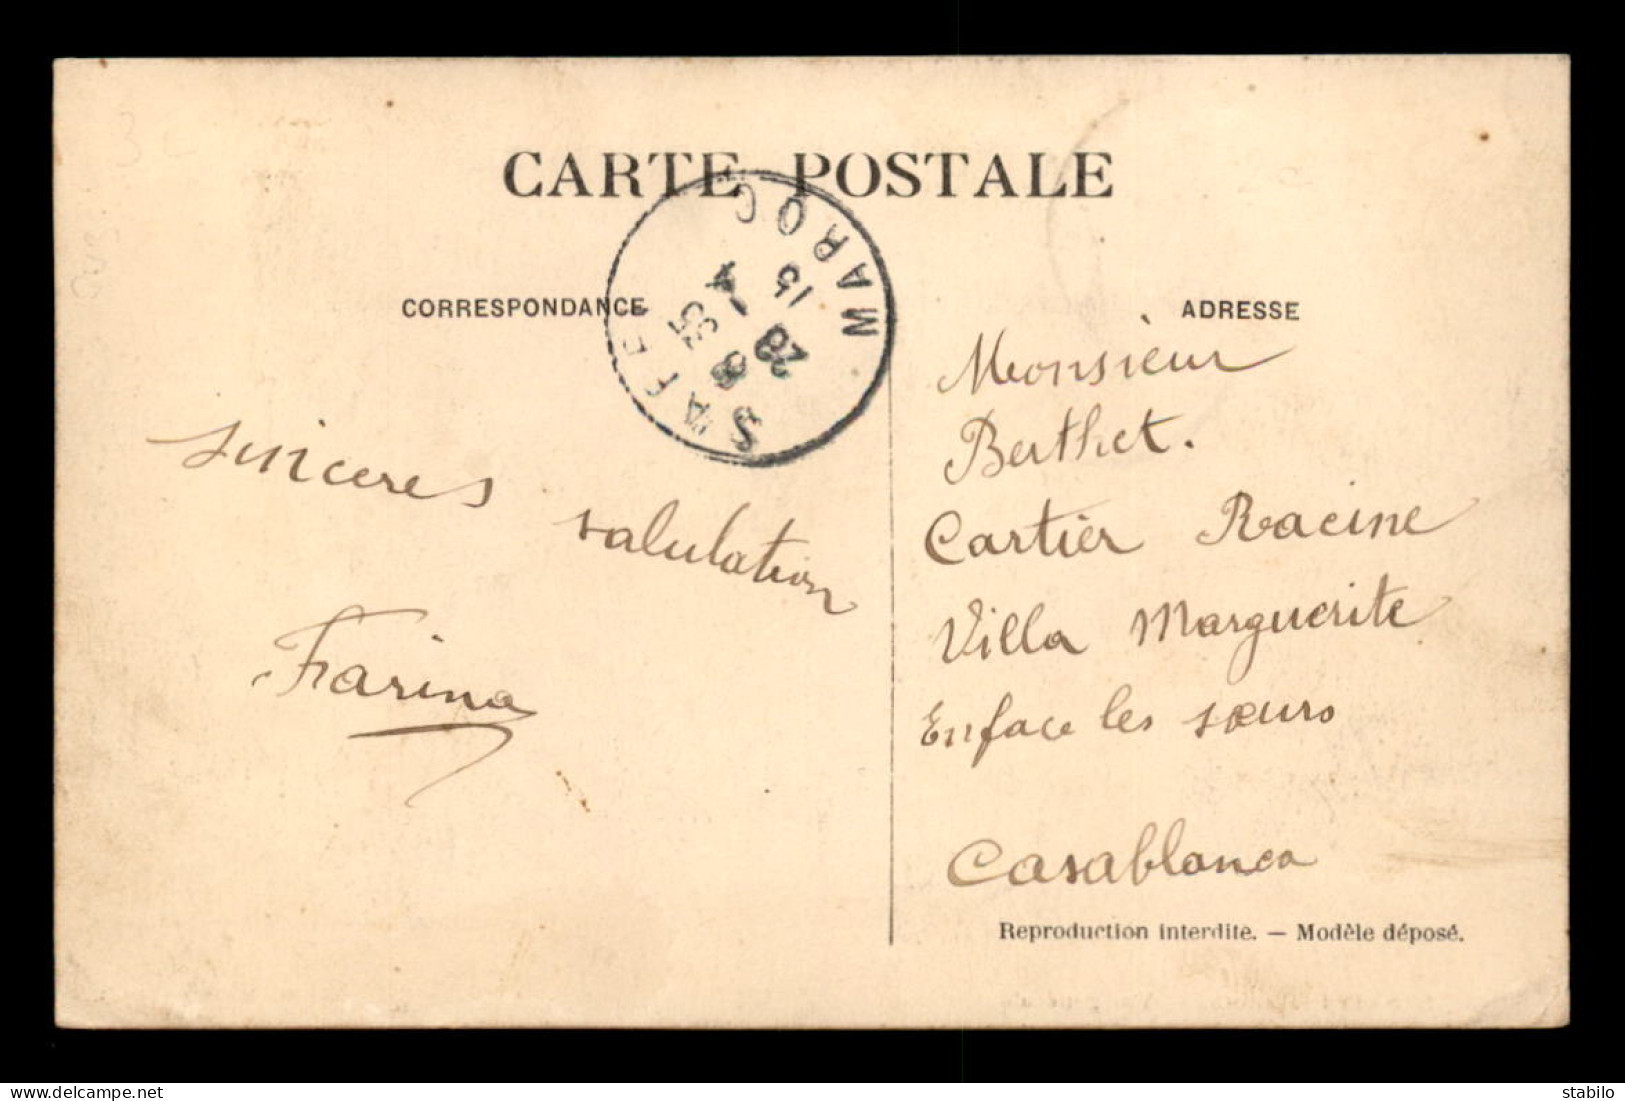 CARTE POSTALE
CORRESPONDANCE
ADRESSE
SAFFI
MAROC
8 35
28 -1
15
sinceres
salulation
Farina
Monsieur
Berthet.
Cartier Racine
Villa Marguerite
Enface les sœurs
Casablanca
Reproduction interdite. — Modèle déposé.
www.delcampe.net
stabilo